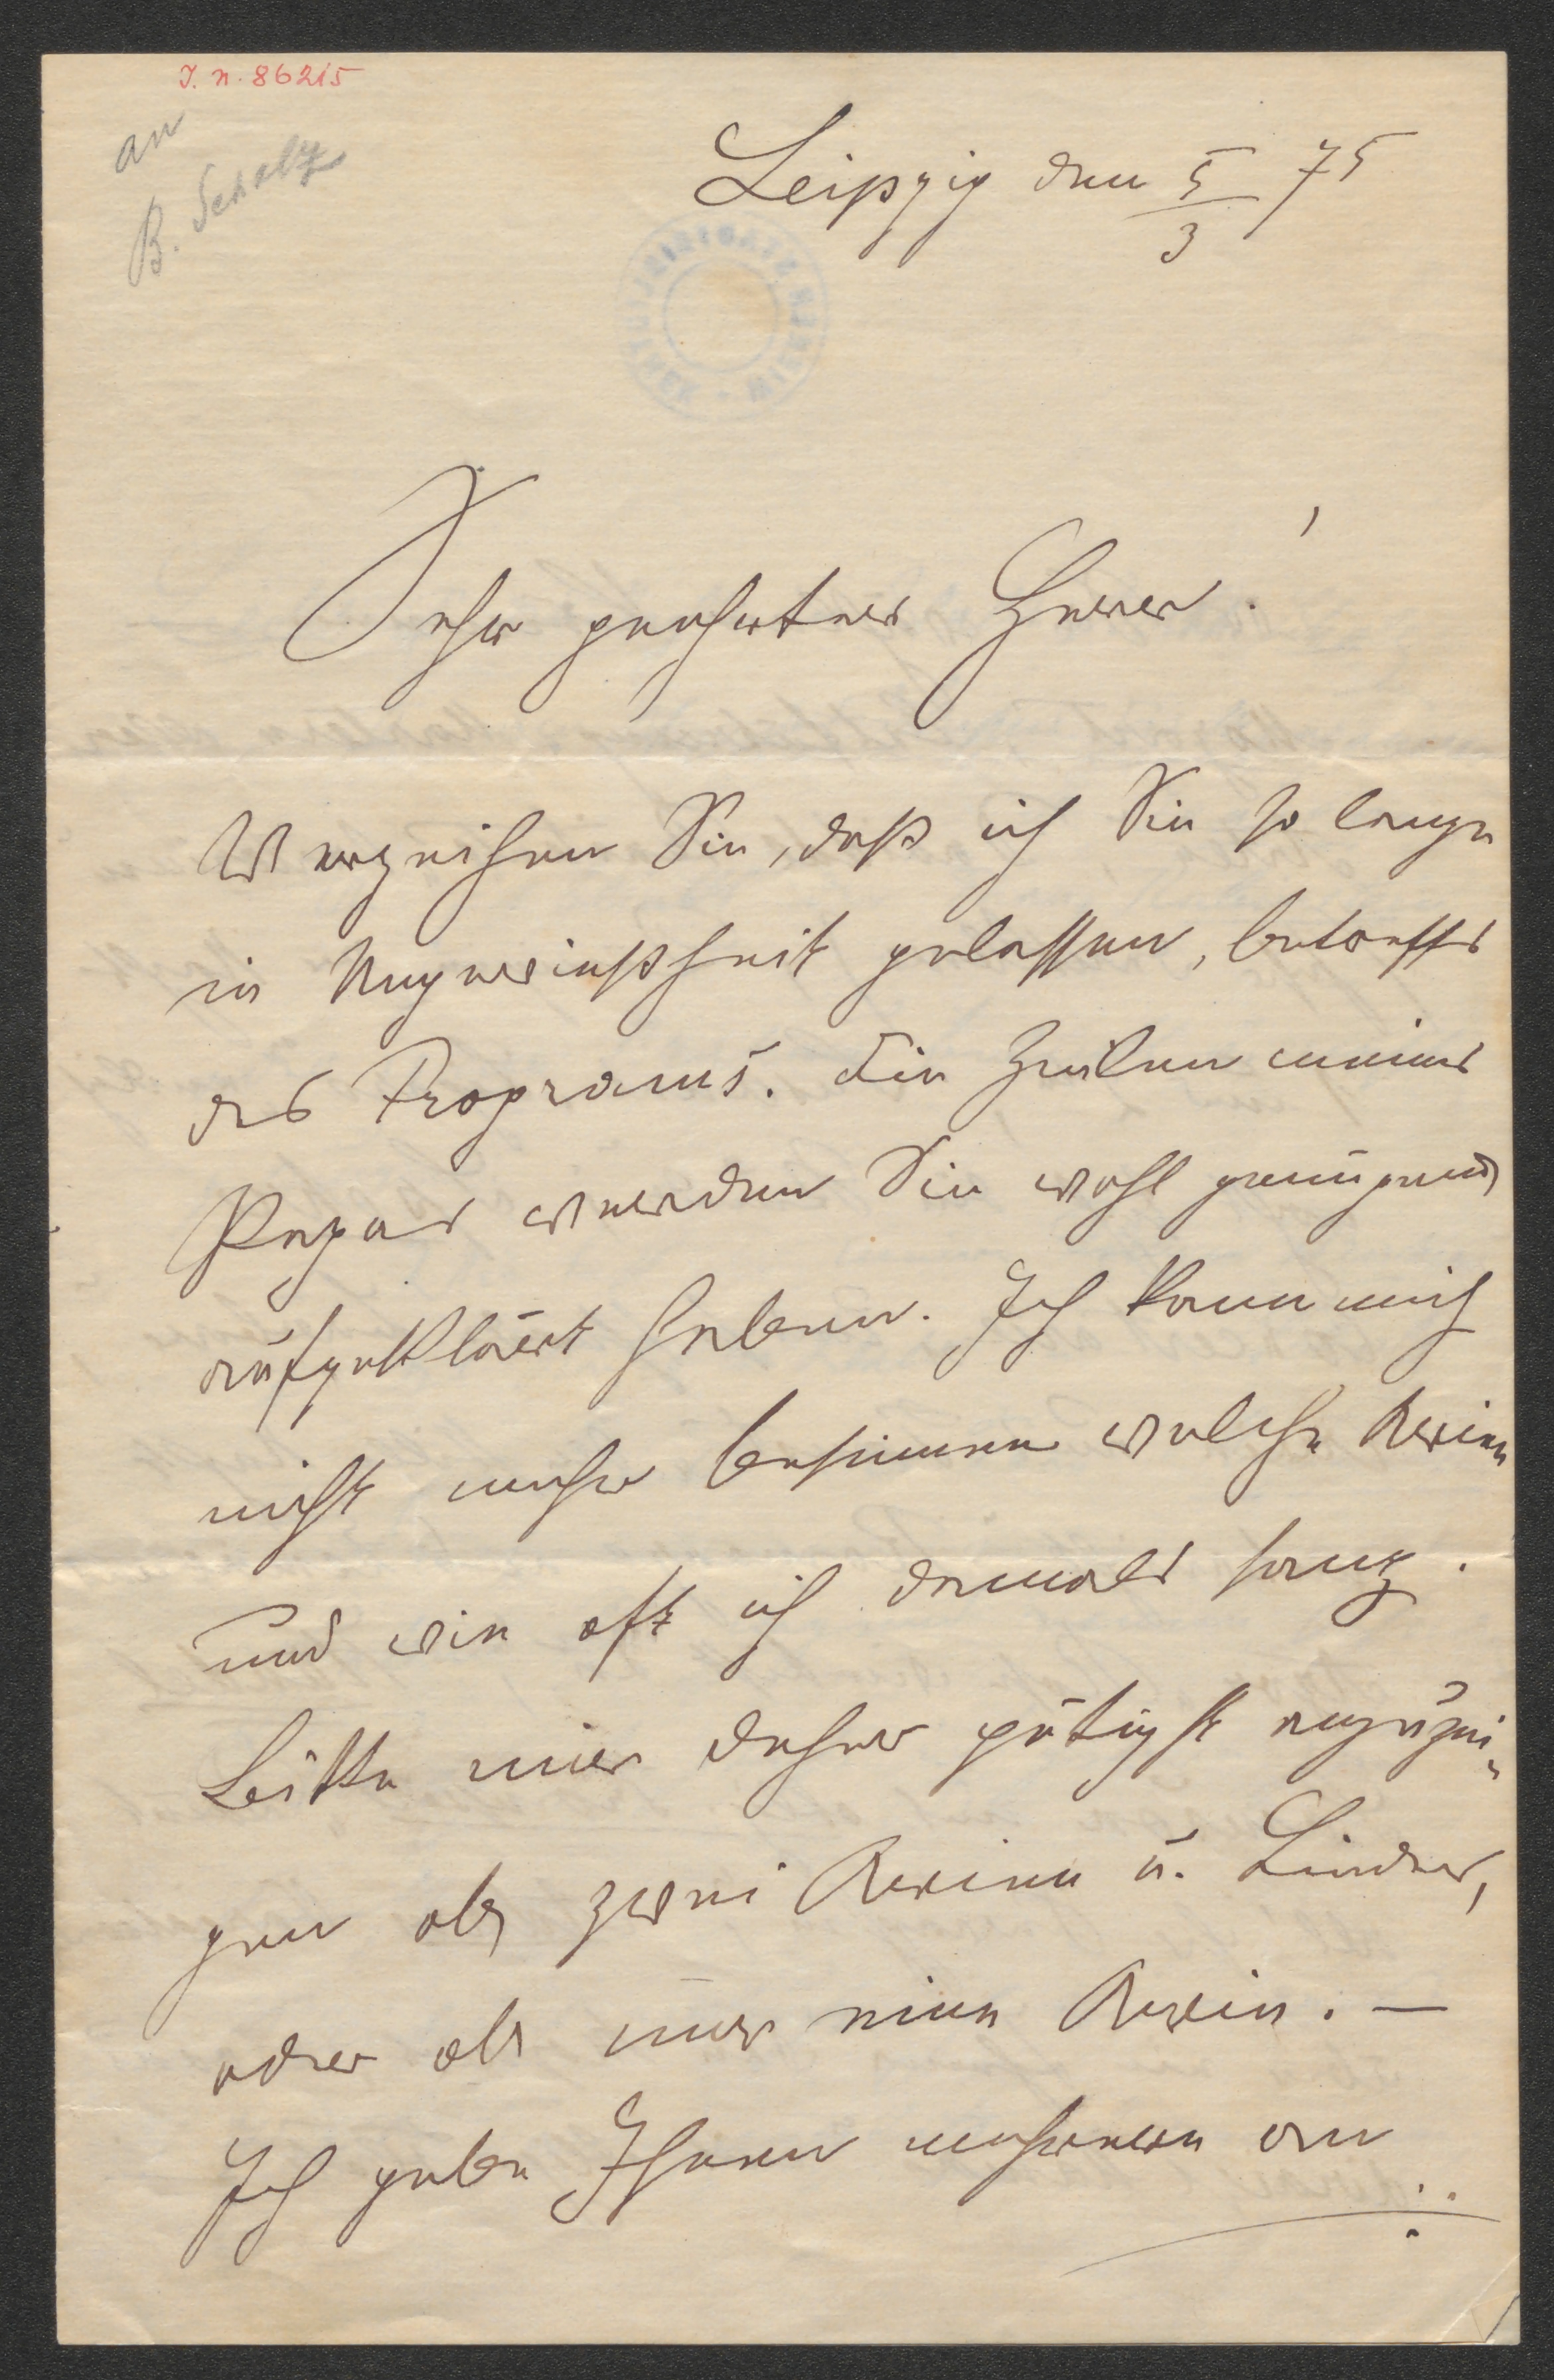 J. N. 86215
an
B. Scholz
Leipzig den 5/3 75
Sehr geehrter Herr!
Verzeihen Sie, daß ich Sie so lange
in Ungewißheit gelassen, betreffs
des Programs. Die Zeilen meines
Papas werden Sie wohl genügend
aufgeklärt haben. Ich kann mich
nicht mehr besinnen welche Arien
und wie oft ich damals sang.
Bitte mir daher gütigst anzuzei-
gen ob zwei Arien u. Lieder,
oder ob nur eine Arie. —
Ich gebe Ihnen mehrere an